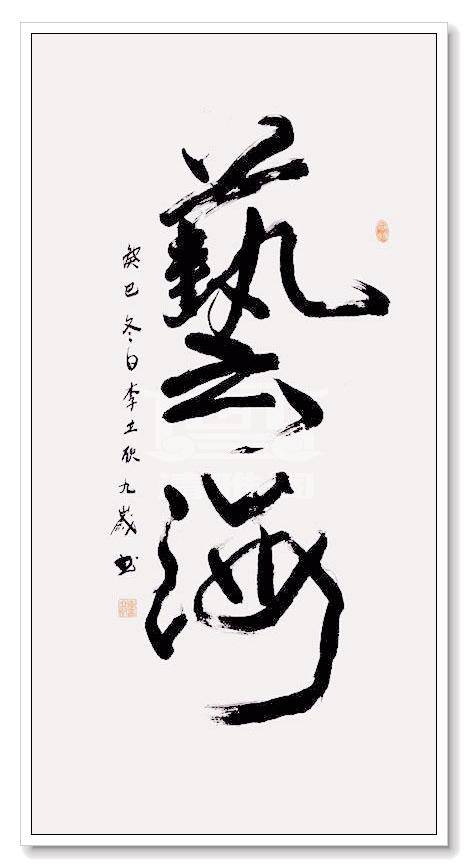 藝海
癸巳冬日李士欣九歲書